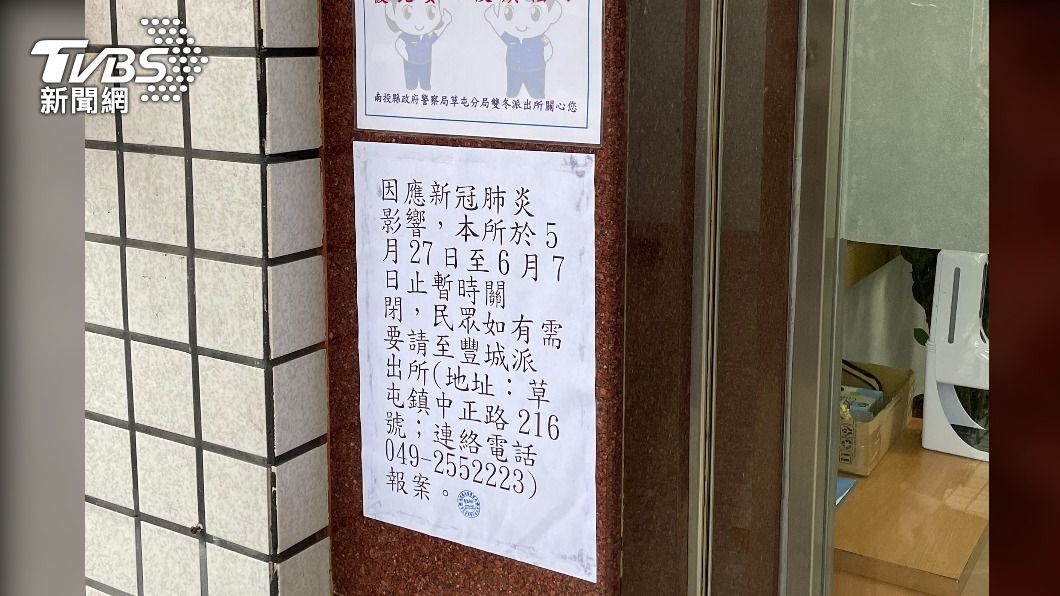 TVBS
新聞網
南投縣政府警察局草屯分局雙冬派出所關心您
因應新冠肺炎
影響，本所於5
月27日至6月7
日止暫時關
閉，民眾如有需
要請至豐城派
出所(地址：草
屯鎮中正路216
號；連絡電話
049-2552223)
報案。